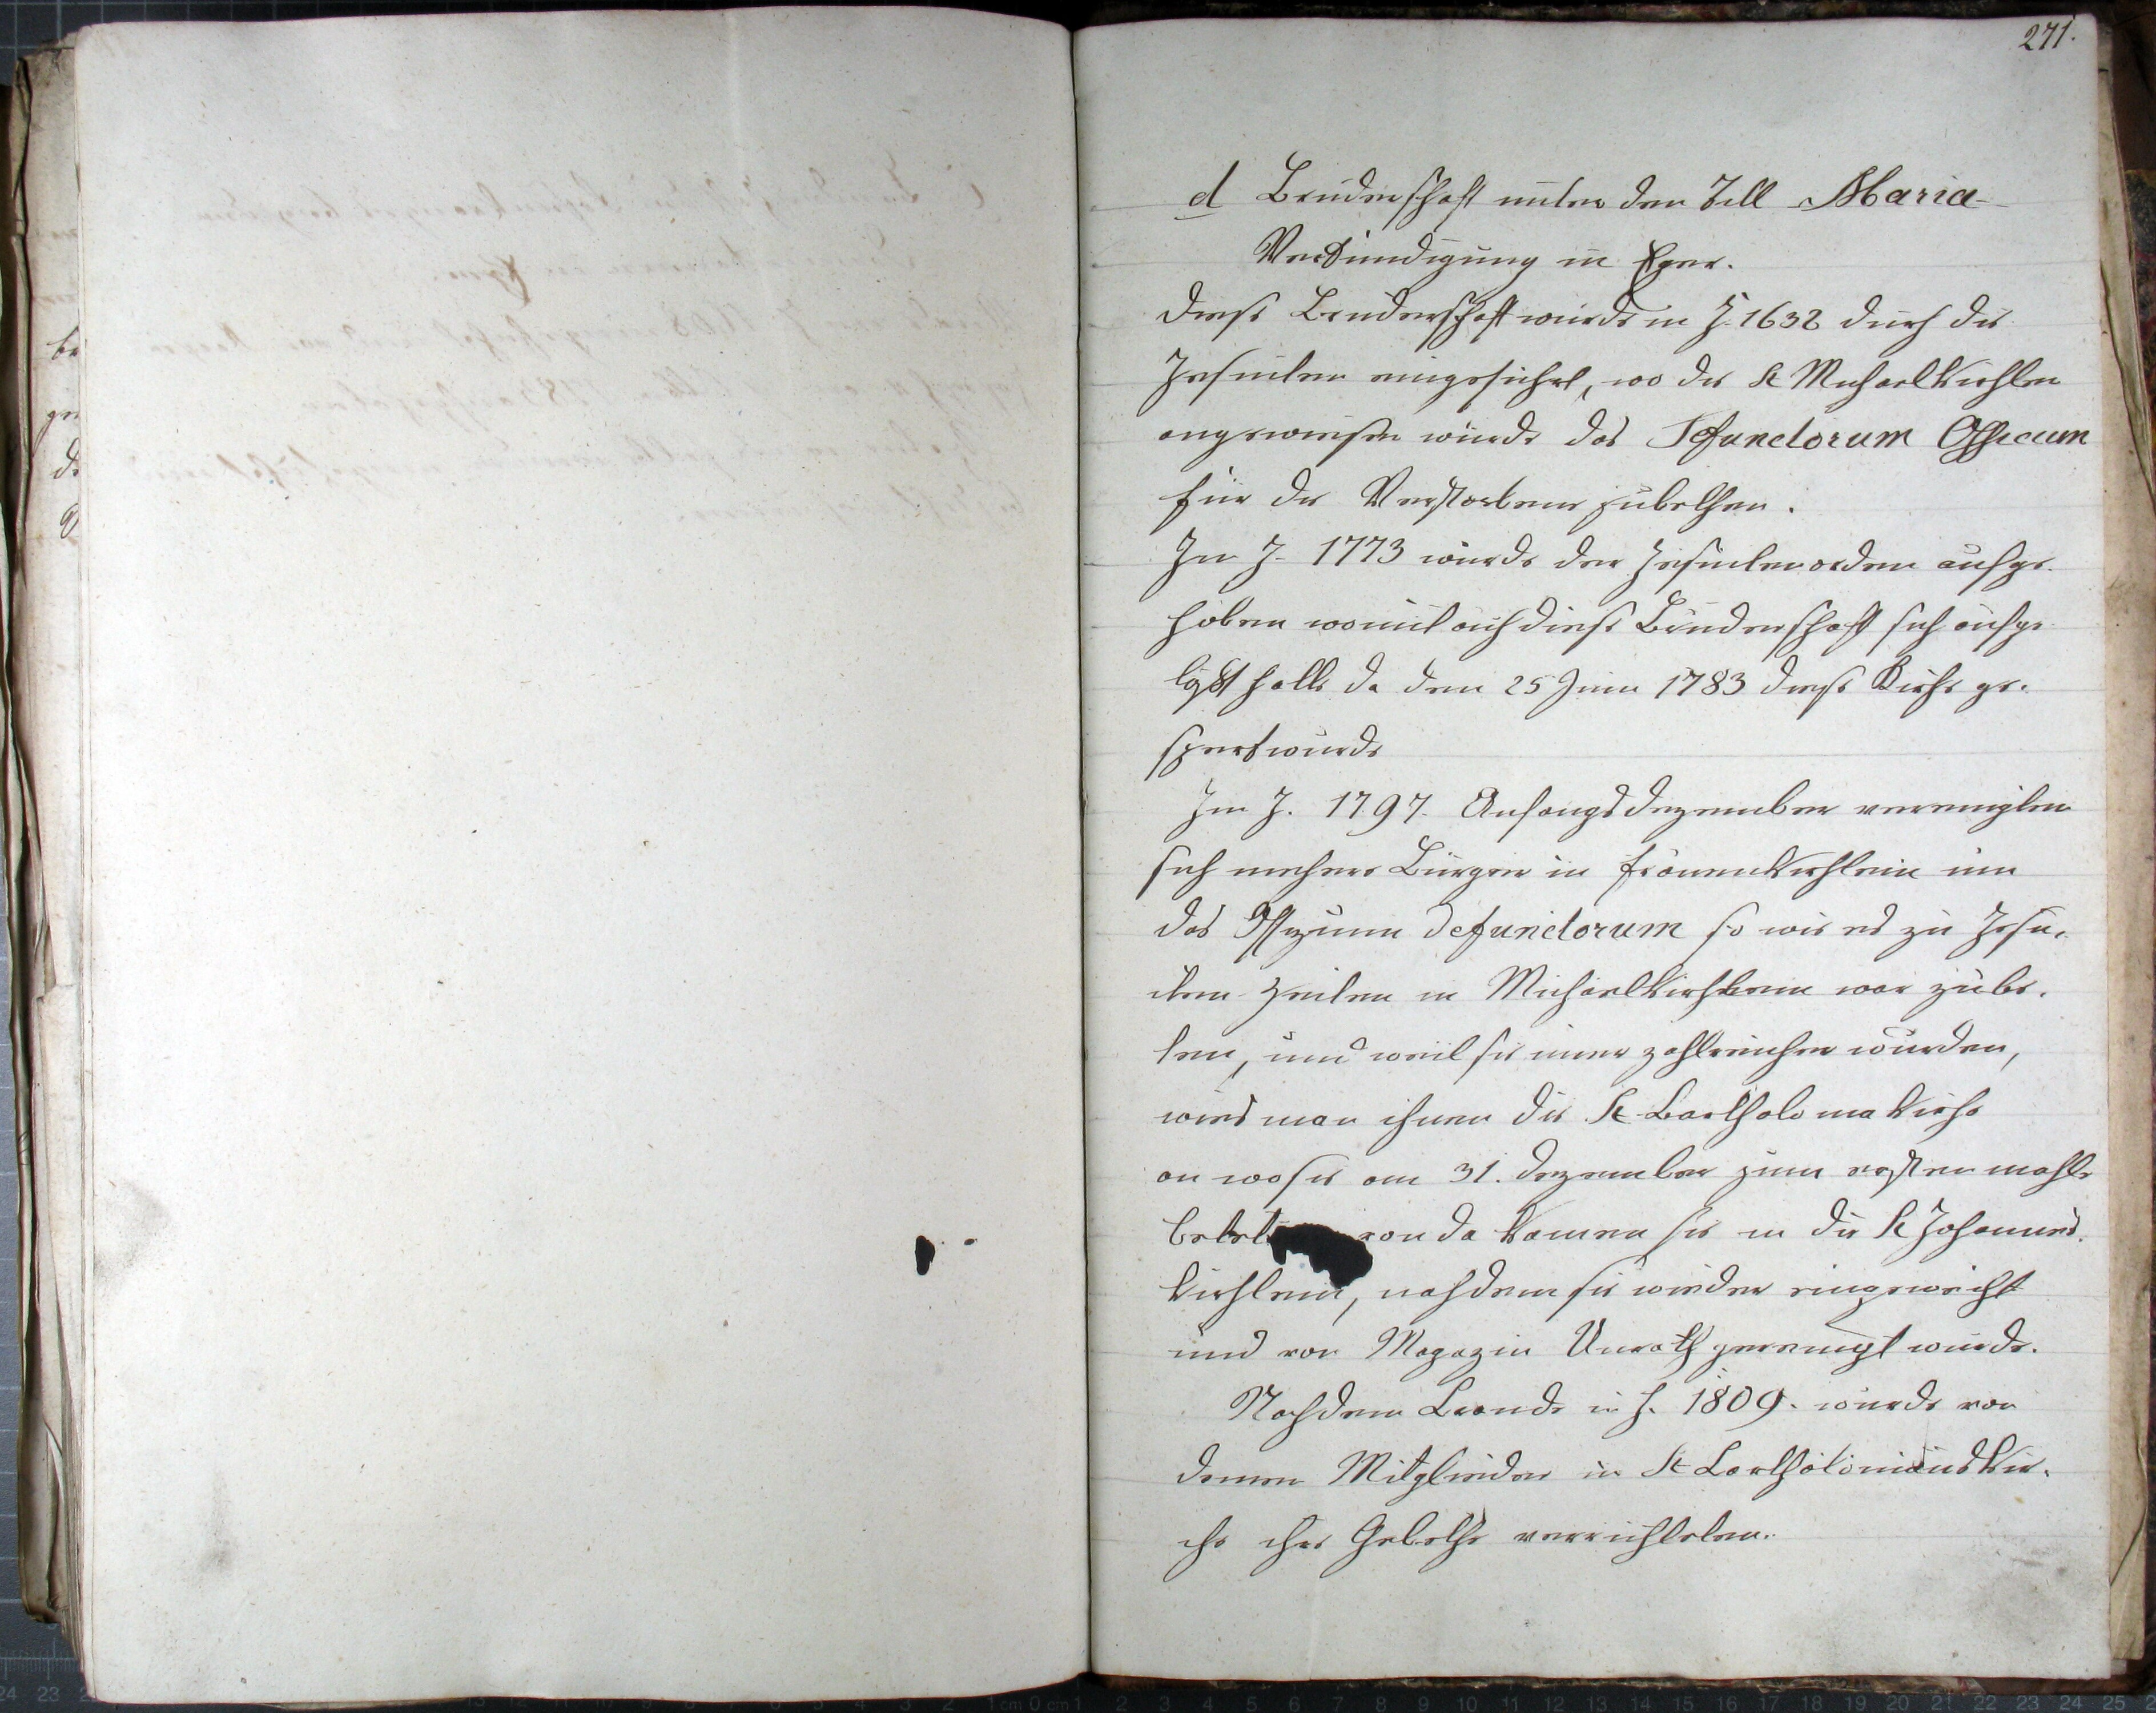 271.
d Bruderschaft unter den Titl Maria-
Verkündigung in Eger.
Diese Bruderschaft wurde in J. 1632 durch die
Jesuiten eingeführt, wo die St Michaelkirchlen
angewiesen wurde das Defunctorum Officum
für die Verstorbene zubethen.
Im J. 1773 wurde der Jesuitenorden aufge-
hoben womit auch diese Bruderschaft sich aufge
löst hatte da den 25 Juni 1783 diese Kirche ge-
spert wurde
Im J. 1797. Anfangs Dezember vereinigten
sich mehere Bürger in Frauenkirchlein um
das Offizium Defunctorum so wie es zu Jesu-
iten Zeiten in Michaelkirchlein war zube-
ten, und weil sie imer zahlreicher wurden,
wies man ihnen die St Bartholomakirche
an wo sie am 31. Dezember zum ersten mahle
betet von da kamen sie in die St Johannes-
kirchlein, nachdem sie wieder eingeweiht
und von Magazin Unrath gereinigt wurde.
Nach dem Brande in J. 1809. wurde von
denen Mitglieder in St Bartholomäuskir-
che ihr Gebethe verrichteten.